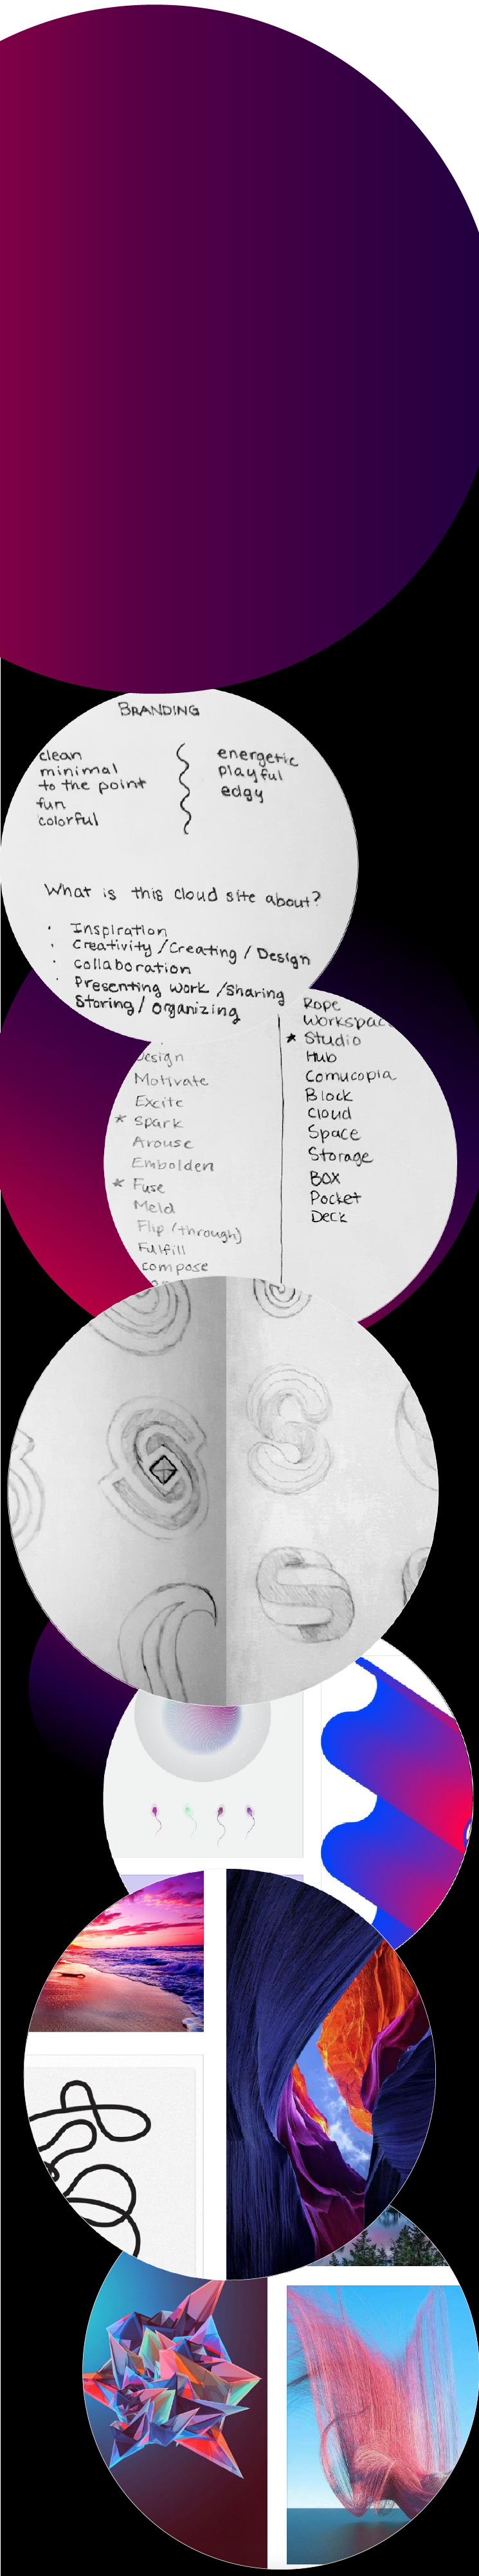 BRANDING
clean
minimal
to the point
fun
colorful
energetic
playful
edgy
What is this cloud site about?
· Inspiration
· Creativity / Creating / Design
· Collaboration
· Presenting work / Sharing
Storing / Organizing
Design
Motivate
Excite
* Spark
Arouse
Embolden
* Fuse
Meld
Flip (through)
Fulfill
compose
Rope
Workspac
* Studio
Hub
Cornucopia
Block
Cloud
Space
Storage
Box
Pocket
Deck